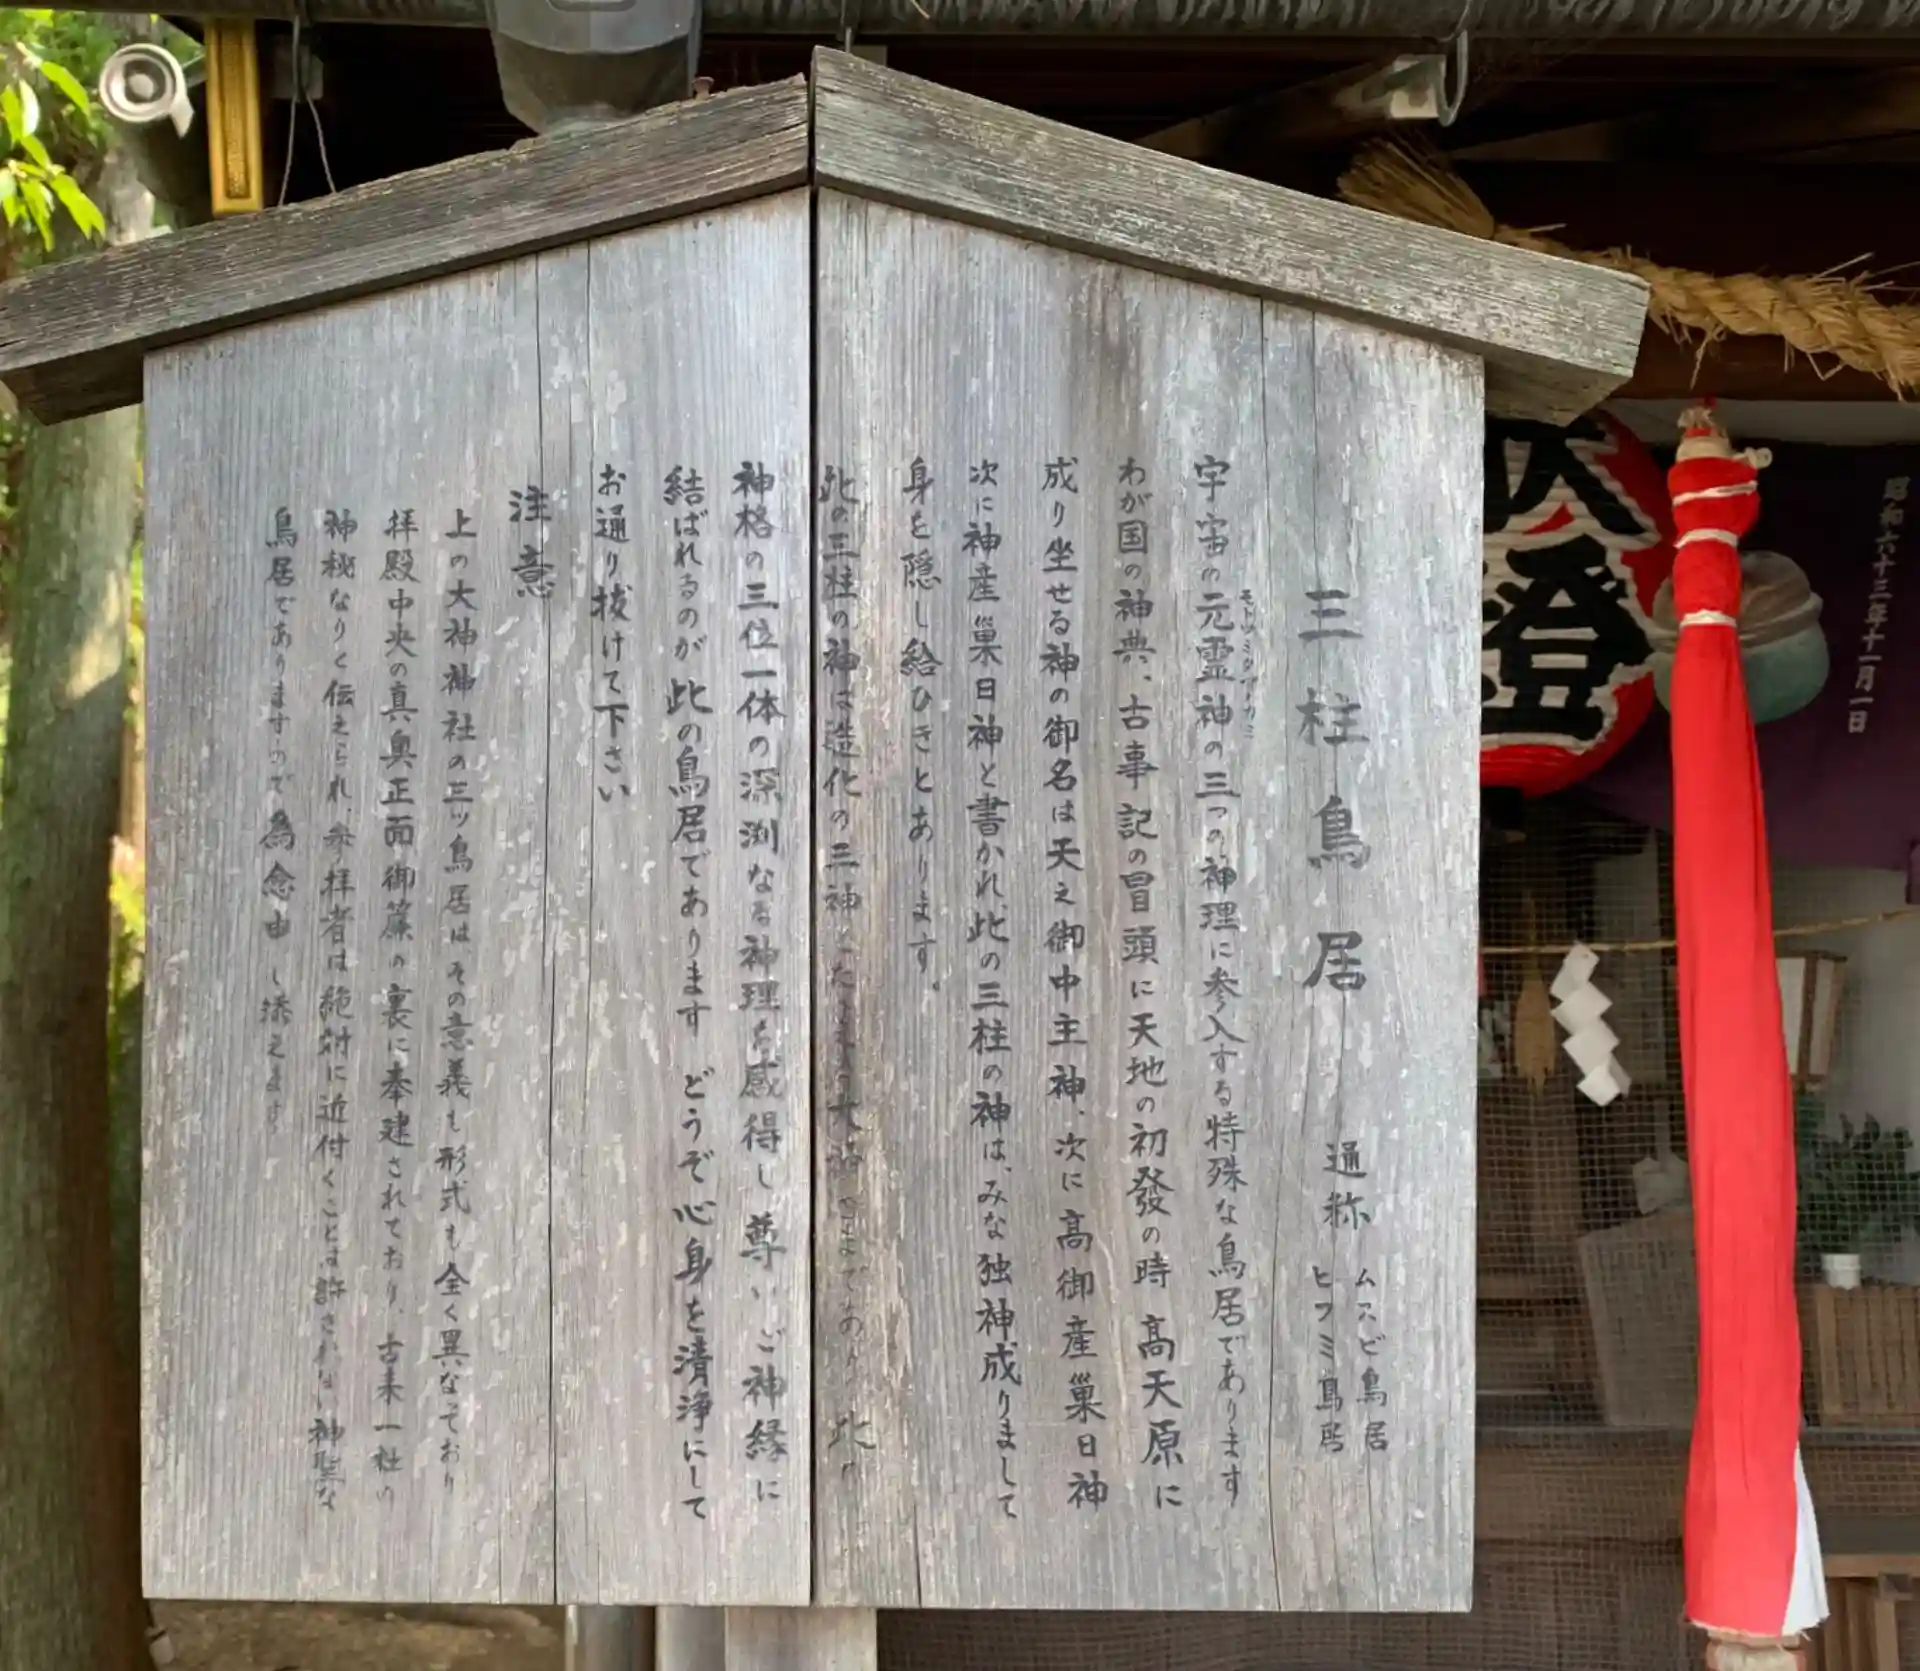 三柱鳥居
通称
ムスビ鳥居
ヒフミ鳥居
宇宙の元霊神の三つの神理に参入する特殊な鳥居であります
わが国の神典、古事記の冒頭に天地の初發の時 高天原に
成り坐せる神の御名は天之御中主神、次に高御産巣日神
次に神産巣日神と書かれ、此の三柱の神は、みな独神成りまして
身を隠し給ひきとあります。
此の三柱の神は造化の三神 此の
神格の三位一体の深渕なる神理を感得し尊いご神縁に
結ばれるのが此の鳥居であります どうぞ心身を清浄にして
お通り抜けて下さい
注意
上の大神神社の三ツ鳥居は、その意義も形式も全く異なっており
拝殿中央の真奥正面御簾の裏に奉建されており、古来一社の
神秘なりと伝えられ、参拝者は絶対に近付くことは許されない神聖な
鳥居でありますので為念申し添えます
昭和六十三年十一月一日
登